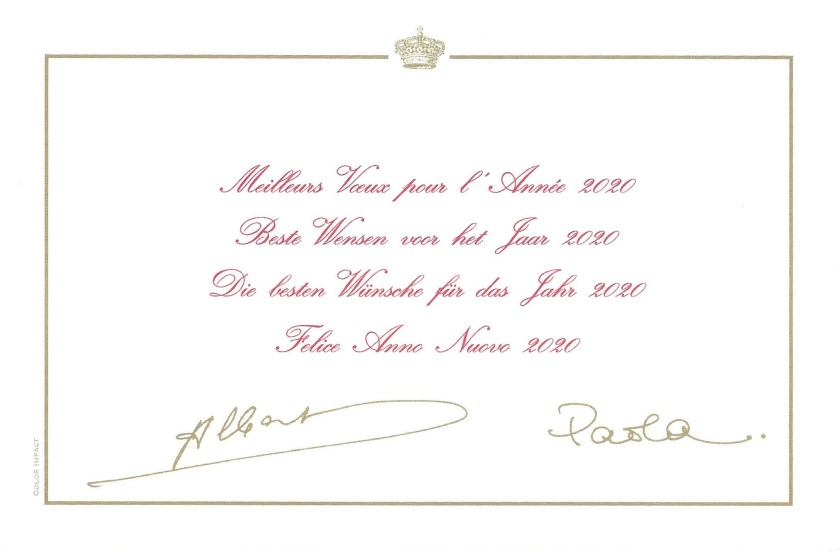 Meilleurs Vœux pour l'Année 2020
Beste Wensen voor het Jaar 2020
Die besten Wünsche für das Jahr 2020
Felice Anno Nuovo 2020
Albert
Paola
COLOR IMPACT